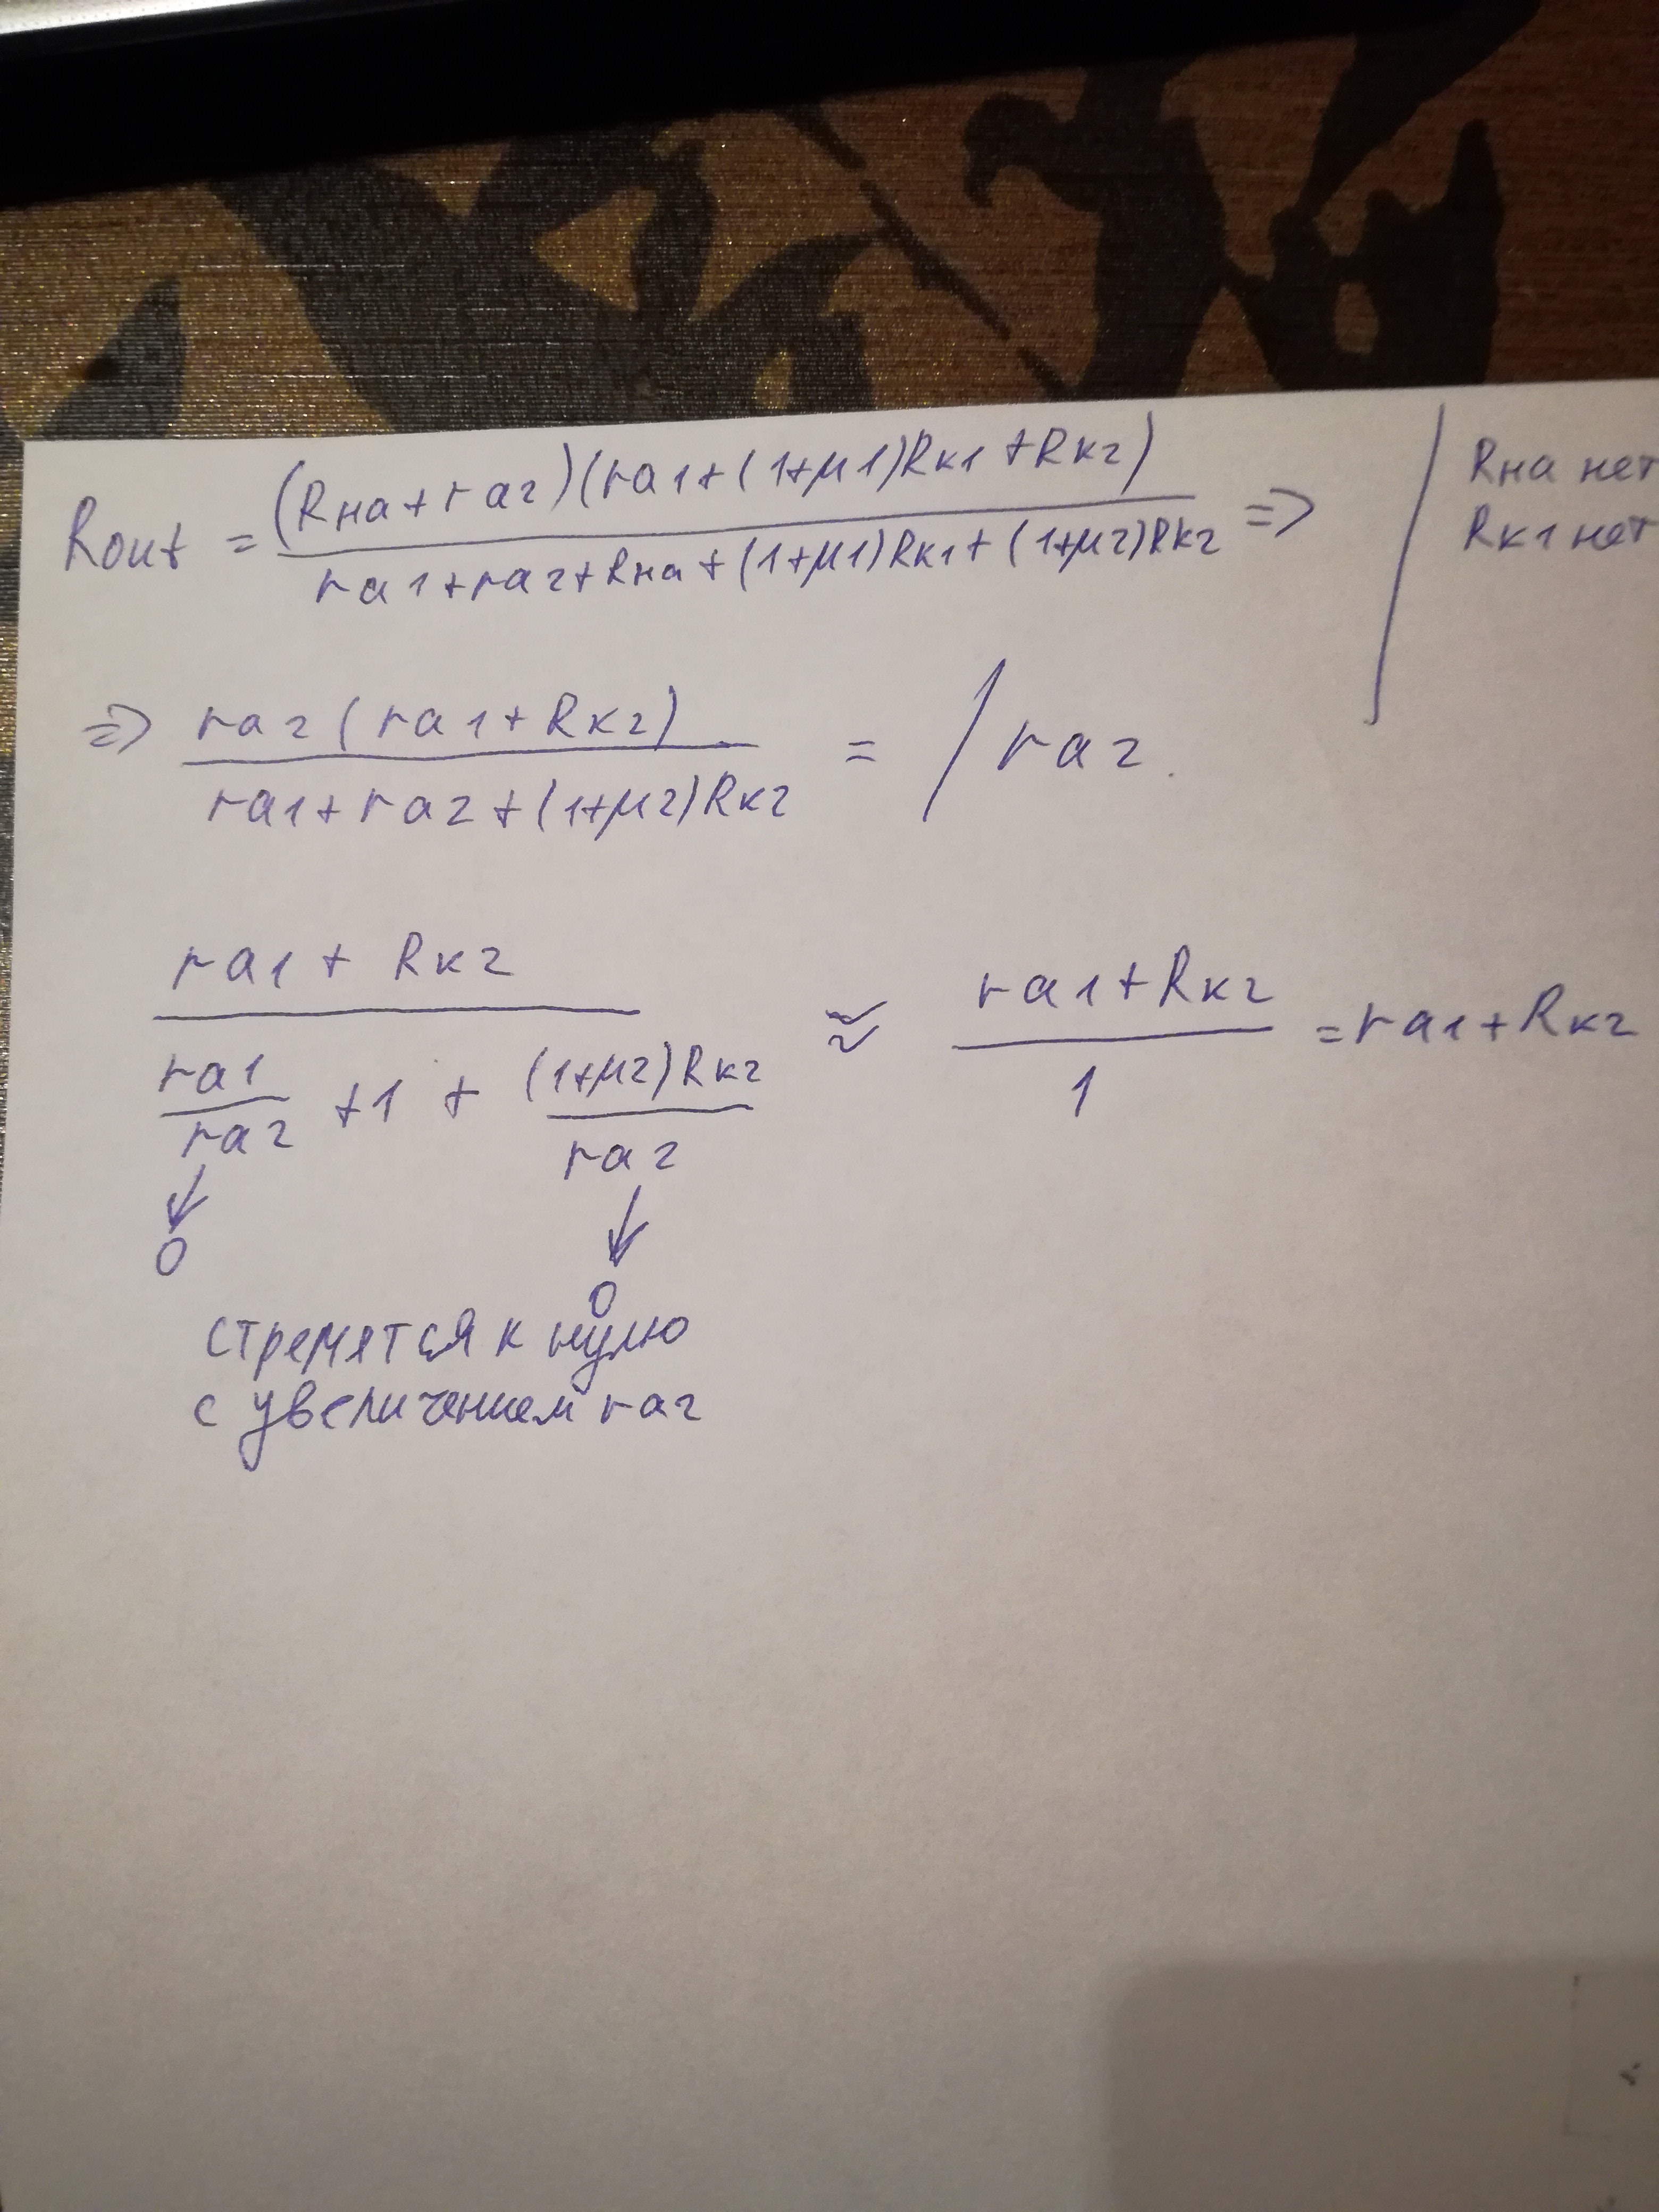 Rout = (Rна+rа2)(rа1+(1+μ1)Rк1+Rк2) / rа1+rа2+Rна+(1+μ1)Rк1+(1+μ2)Rк2 =>
Rна нет
Rк1 нет
=> rа2(rа1+Rк2) / rа1+rа2+(1+μ2)Rк2 = / rа2.
rа1 + Rк2 / rа1/rа2 + 1 + (1+μ2)Rк2/rа2 ≈ rа1+Rк2 / 1 = rа1+Rк2
↓ 0 ↓ 0
стремятся к нулю
с увеличением rа2